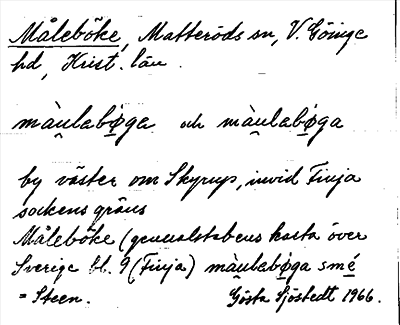 Måleböke, Matteröds sn, V. Göinge
hd, Krist. län.
màu̯labø̱ga och màu̯labø̱ga
by väster om Skyrup, invid Finja
sockens gräns
Måleböke (generalstabens karta över
Sverige bl. 9 (Finja) màu̯labø̱ga smé̱
= Steen. Gösta Sjöstedt 1966.